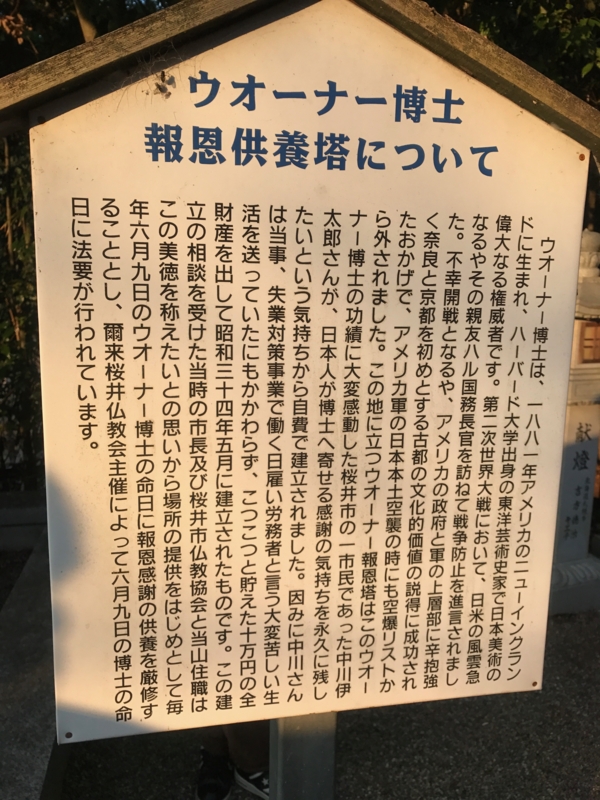 ウオーナー博士
報恩供養塔について
ウオーナー博士は、一八八一年アメリカのニューイングラン
ドに生まれ、ハーバード大学出身の東洋芸術史家で日本美術の
偉大なる権威者です。第二次世界大戦において、日米の風雲急
なるやその親友ハル国務長官を訪ねて戦争防止を進言されまし
た。不幸開戦となるや、アメリカの政府と軍の上層部に辛抱強
く奈良と京都を初めとする古都の文化的価値の説得に成功され
たおかげで、アメリカ軍の日本本土空襲の時にも空爆リストか
ら外されました。この地に立つウオーナー報恩塔はこのウオー
ナー博士の功績に大変感動した桜井市の一市民であった中川伊
太郎さんが、日本人が博士へ寄せる感謝の気持ちを永久に残し
たいという気持ちから自費で建立されました。因みに中川さん
は当事、失業対策事業で働く日雇い労務者と言う大変苦しい生
活を送っていたにもかかわらず、こつこつと貯えた十万円の全
財産を出して昭和三十四年五月に建立されたものです。この建
立の相談を受けた当時の市長及び桜井市仏教協会と当山住職は
この美徳を称えたいとの思いから場所の提供をはじめとして毎
年六月九日のウオーナー博士の命日に報恩感謝の供養を厳修す
ることとし、爾来桜井仏教会主催によって六月九日の博士の命
日に法要が行われています。
献燈